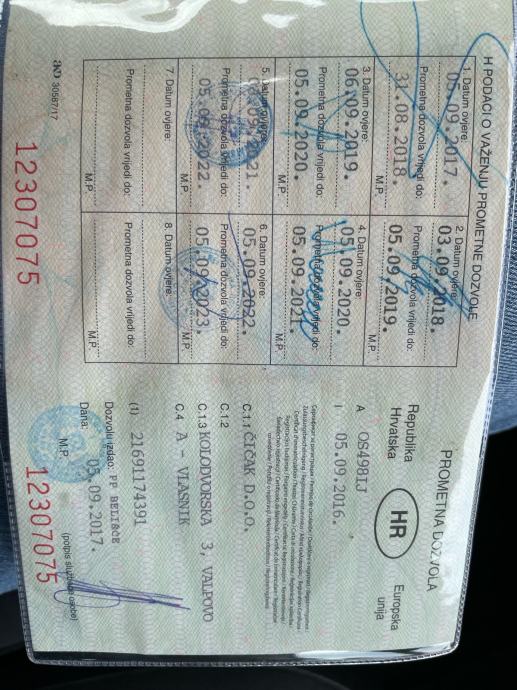 H PODACI O VAŽENJU PROMETNE DOZVOLE
1. Datum ovjere:
05.09.2017.
Prometna dozvola vrijedi do:
31.08.2018.
M.P.
2. Datum ovjere:
03.09.2018.
Prometna dozvola vrijedi do:
05.09.2019.
M.P.
3. Datum ovjere:
06.09.2019.
Prometna dozvola vrijedi do:
05.09.2020.
M.P.
4. Datum ovjere:
05.09.2020.
Prometna dozvola vrijedi do:
05.09.2021.
M.P.
5. Datum ovjere:
Prometna dozvola vrijedi do:
05.09.2022.
M.P.
6. Datum ovjere:
05.09.2022.
Prometna dozvola vrijedi do:
05.09.2023.
M.P.
7. Datum ovjere:
Prometna dozvola vrijedi do:
M.P.
8. Datum ovjere:
Prometna dozvola vrijedi do:
M.P.
30587/17
12307075
PROMETNA DOZVOLA
Republika
Hrvatska
HR
Europska
unija
A OS498IJ
I 05.09.2016.
C.1.1 ČIČAK D.O.O.
C.1.2
C.1.3 KOLODVORSKA 3, VALPOVO
C.4 A - VLASNIK
(1) 21691174391
Dozvolu izdao: PP BELIŠĆE
Dana: 05.09.2017.
M.P.
(potpis službene osobe)
12307075